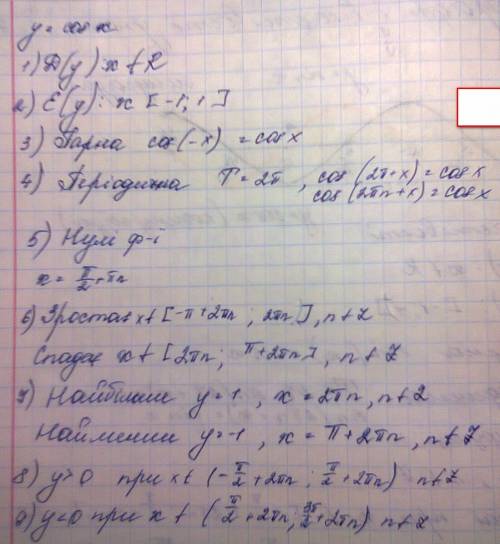 y = cos x
1) D(y): x ∈ R
2) E(y): x [-1; 1]
3) Парна cos(-x) = cos x
4) Періодична T = 2π , cos(2π+x) = cos x
cos(2πn+x) = cos x
5) Нулі ф-і
x = π/2 + πn
6) Зростає x ∈ [-π+2πn ; 2πn], n ∈ Z
Спадає x ∈ [2πn; π+2πn], n ∈ Z
7) Найбільше y = 1 , x = 2πn, n ∈ Z
Найменше y = -1 , x = π+2πn, n ∈ Z
8) y > 0 при x ∈ (-π/2 + 2πn ; π/2 + 2πn) n ∈ Z
9) y < 0 при x ∈ (π/2 + 2πn; 3π/2 + 2πn) n ∈ Z